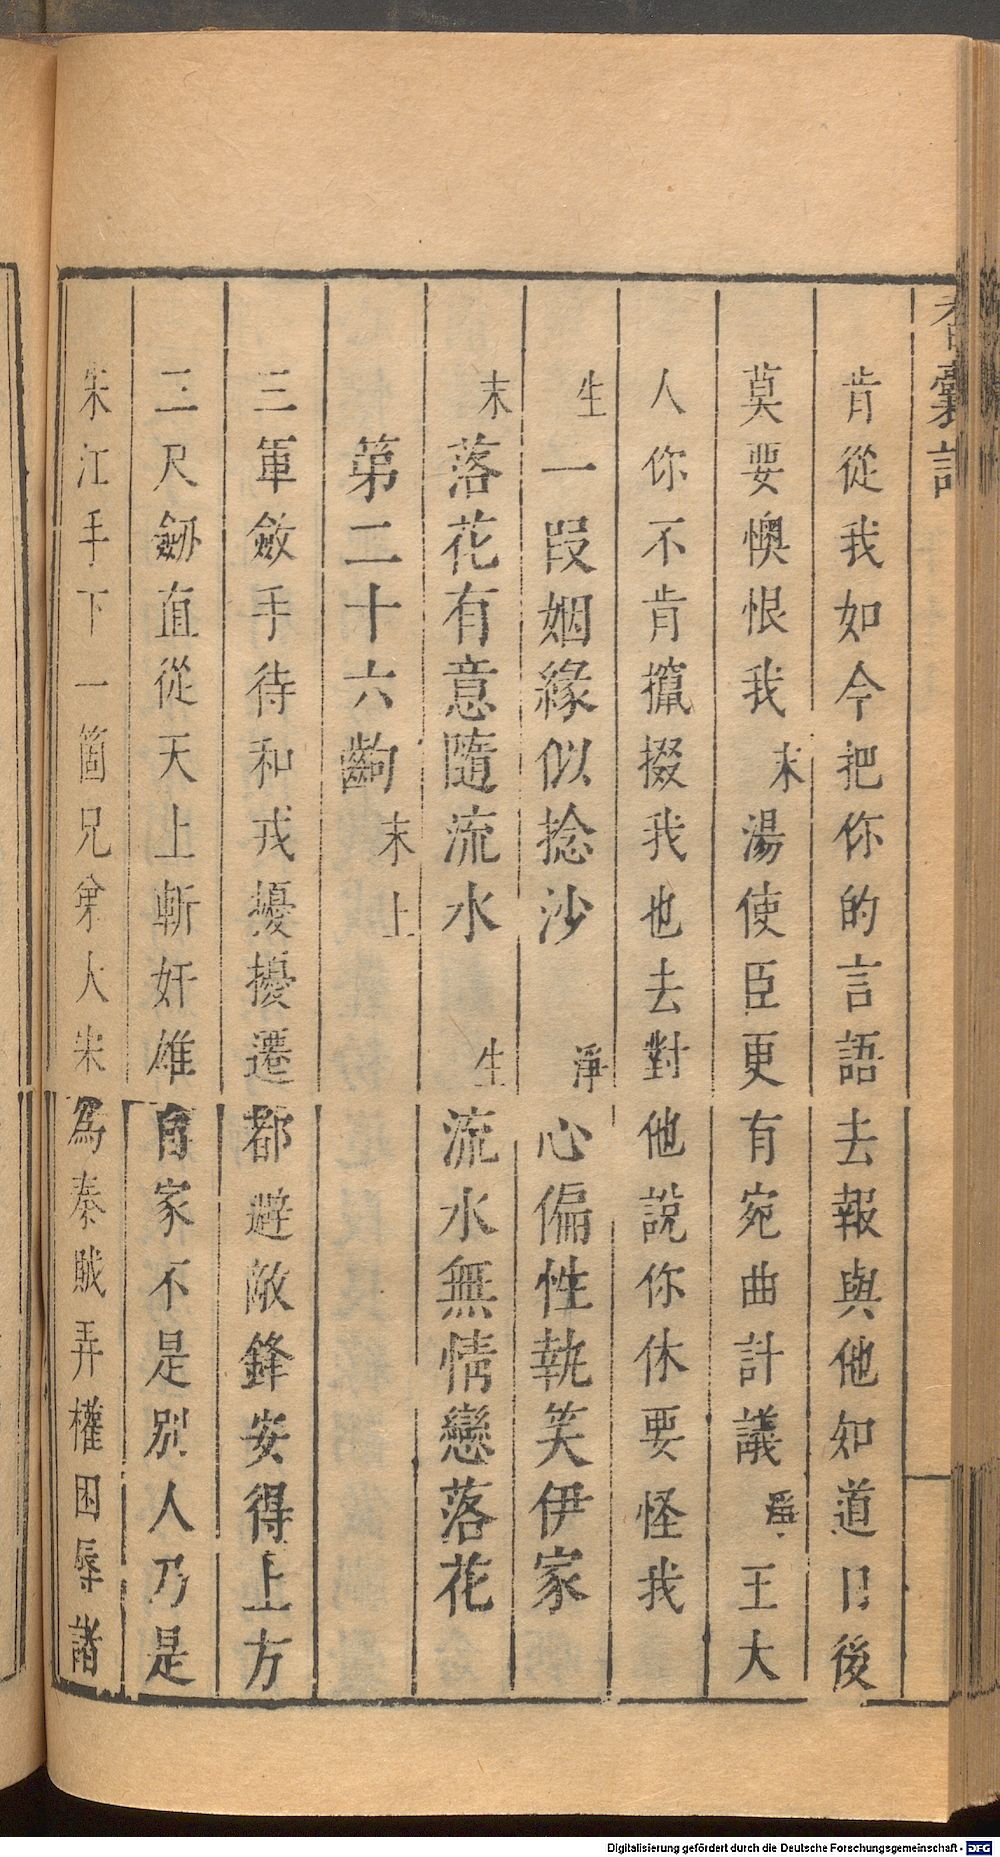 香囊記
肯從我如今把你的言語去報與他如道日後
莫要懊恨我末湯使臣更有宛曲計議淨王大
人你不肯攛掇我也去對他說你休要怪我
生一叚姻緣似捻沙 淨心偏性執笑伊家
末落花有意隨流水 生流水無情戀落花
第二十六齣末上
三軍斂手待和戎擾擾遷都避敵鋒安得上方
三尺劒直從天上斬奸雄自家不是別人乃是
宋江手下一箇兄弟人宋爲秦賊弄權困辱諸
Digitalisierung gefördert durch die Deutsche Forschungsgemeinschaft - DFG